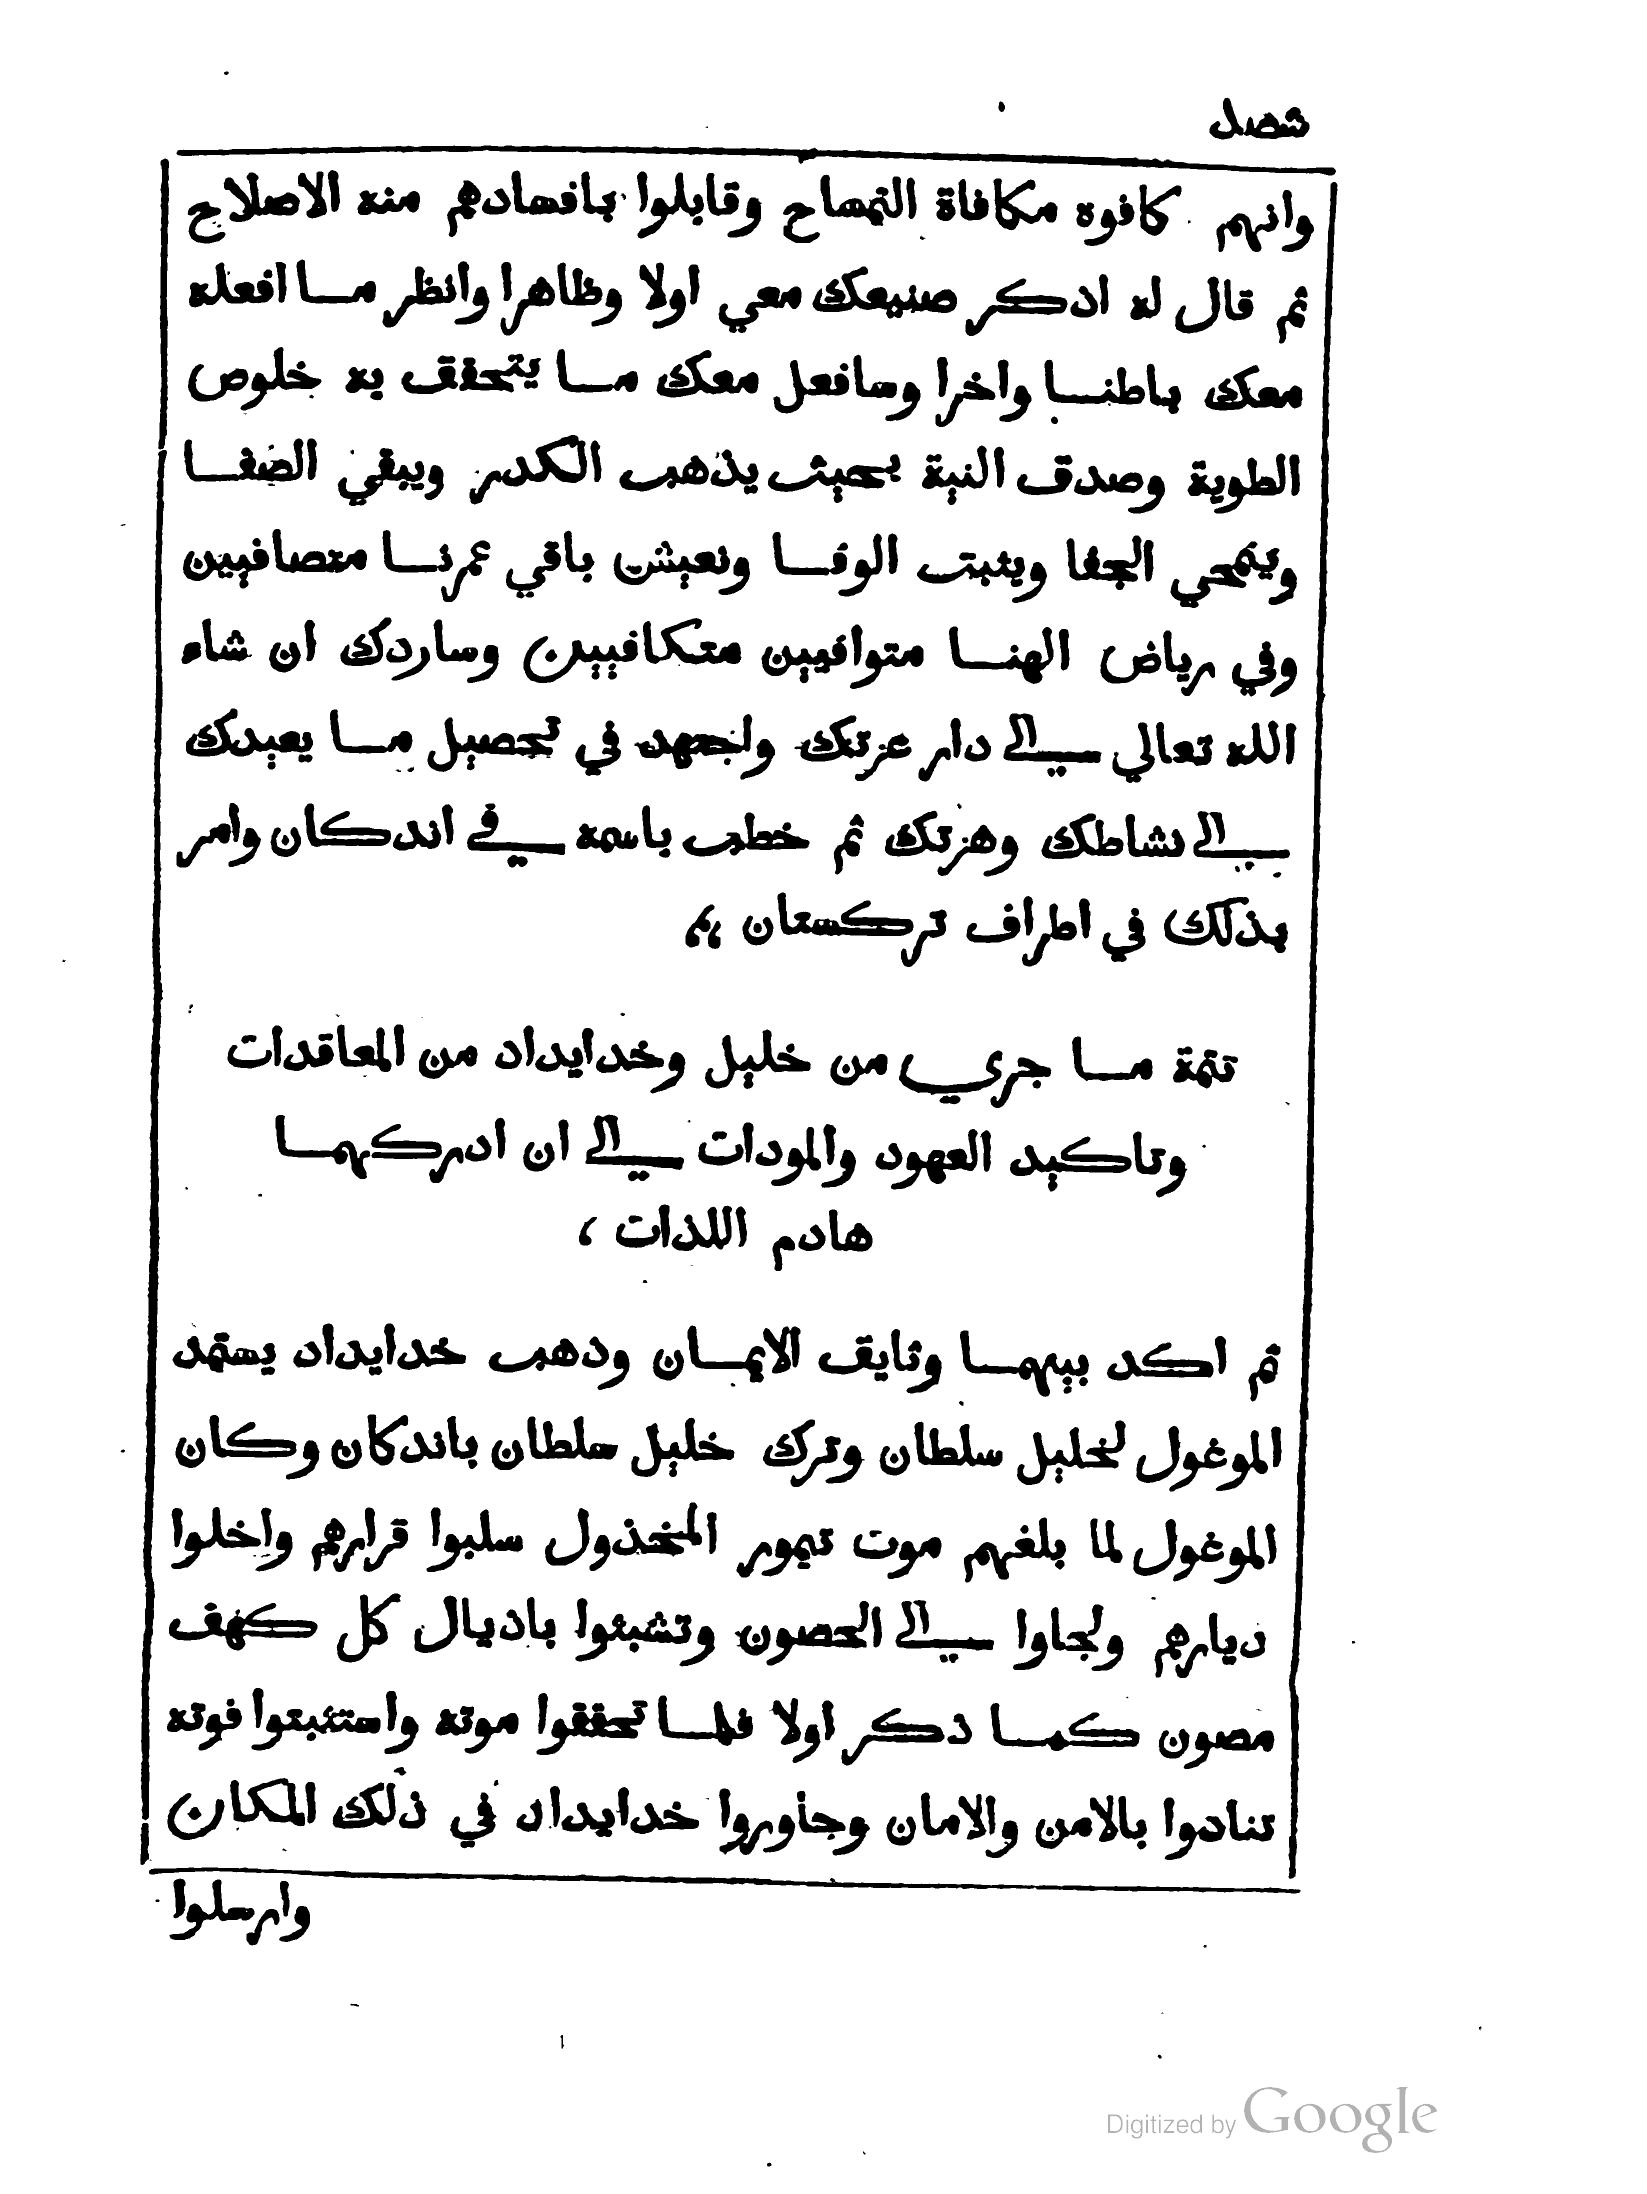 وانهم كافوه مكافاة التمساح وقابلوا بافسادهم منه الاصلاح
ثم قال له اذكر صنيعك معي اولا وظاهرا وانظر ما افعله
معك باطنا واخرا وسافعل معك ما يتحقق به خلوص
الطوية وصدق النية بحيث يذهب الكدر ويبقي الصفا
وينمحي الجفا ويثبت الوفا ونعيش باقي عمرنا متصافيين
وفي رياض الهنا متوافيين متكافيين وساردك ان شاء
الله تعالي الي دار عزتك واجتهد في تحصيل ما يعيدك
الي نشاطك وهزتك ثم خطب باسمه في اندكان وامر
بذلك في اطراف تركستان
تتمة ما جري من خليل وخدايداد من المعاقدات
وتاكيد العهود والمودات الي ان ادركهما
هادم اللذات ،
ثم اكد بينهما وثايق الايمان وذهب خدايداد يستمد
الموغول لخليل سلطان وترك خليل سلطان باندكان وكان
الموغول لما بلغهم موت تيمور المخذول سلبوا قرارهم واخلوا
ديارهم ولجاوا الي الحصون وتشبثوا باذيال كل كهف
مصون كما ذكر اولا فلما تحققوا موته واستثبتوا فوته
تنادوا بالامن والامان وجاوروا خدايداد في ذلك المكان
وارسلوا
Digitized by Google